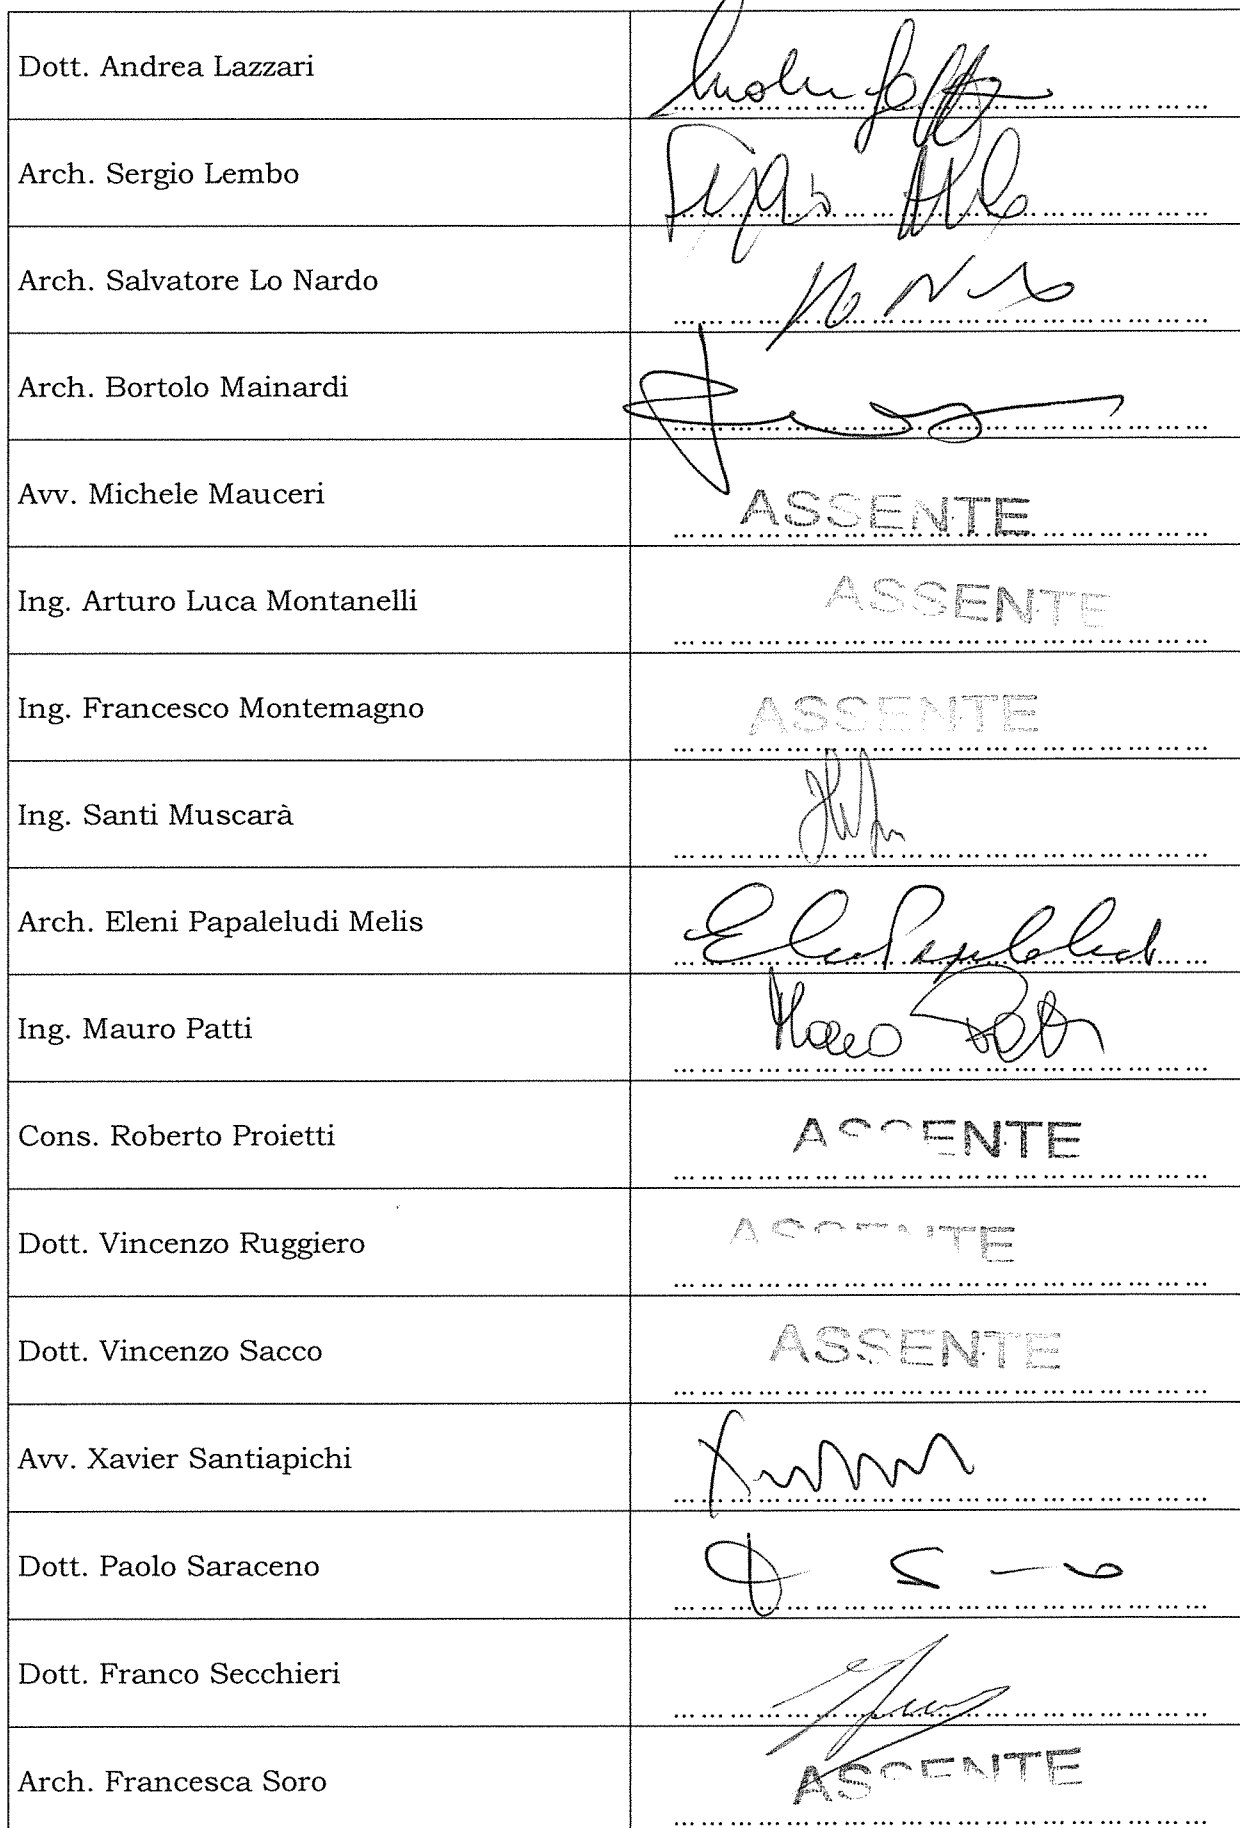 Dott. Andrea Lazzari
Arch. Sergio Lembo
Arch. Salvatore Lo Nardo
Arch. Bortolo Mainardi
Avv. Michele Mauceri ASSENTE
Ing. Arturo Luca Montanelli ASSENTE
Ing. Francesco Montemagno ASSENTE
Ing. Santi Muscarà
Arch. Eleni Papaleludi Melis
Ing. Mauro Patti Mauro Patti
Cons. Roberto Proietti ASSENTE
Dott. Vincenzo Ruggiero ASSENTE
Dott. Vincenzo Sacco ASSENTE
Avv. Xavier Santiapichi
Dott. Paolo Saraceno
Dott. Franco Secchieri
Arch. Francesca Soro ASSENTE